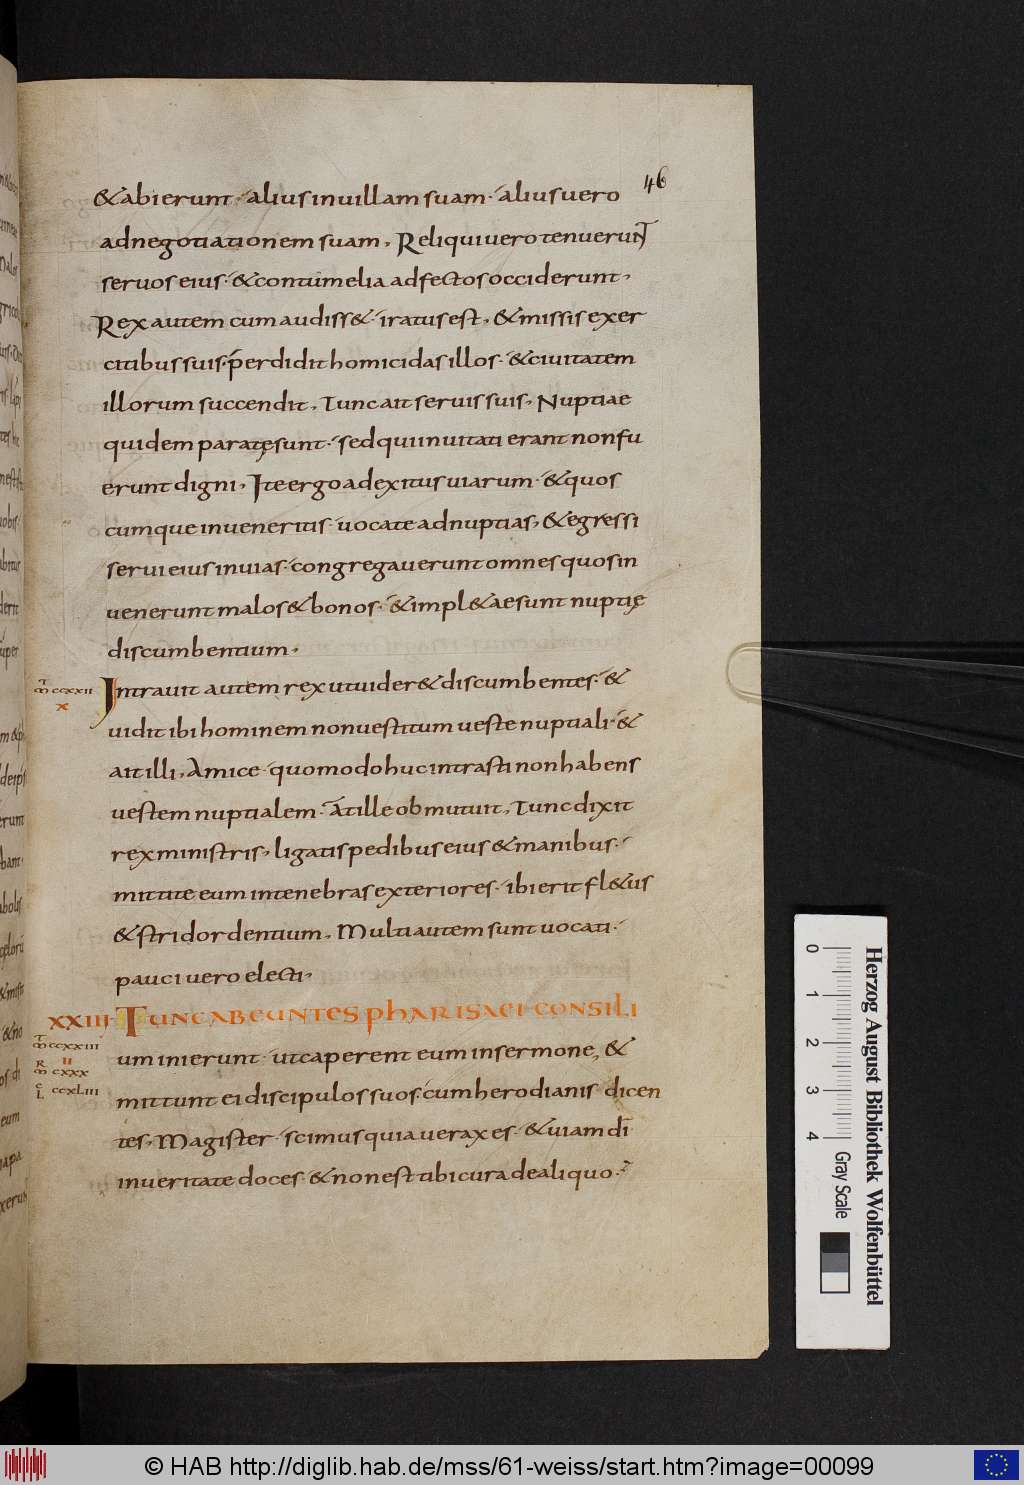 46
&abierunt· alius inuillam suam· alius uero
adnegotiationem suam, Reliqui uero tenuerunt
seruos eius· &contumelia adfectos occiderunt,
Rex autem cum audiss&· iratus est, &missis exer
citibus suis· perdidit homicidas illos· &ciuitatem
illorum succendit, Tunc ait seruis suis, Nuptiae
quidem paratę sunt· sed qui inuitati erant non fu
erunt digni, Ite ergo ad exitus uiarum· &quos
cumque inueneritis· uocate adnuptias, &egressi
serui eius inuias· congregauerunt omnes quos in
uenerunt malos &bonos· &impl&ae sunt nuptię
discumbentium,
Intrauit autem rex ut uider& discumbentes· &
uidit ibi hominem non uestitum ueste nuptiali· &
ait illi, Amice· quomodo huc intrasti non habens
uestem nuptialem· At ille obmutuit, Tunc dixit
rex ministris, ligatis pedibus eius &manibus·
mittite eum intenebras exteriores· ibi erit fl&us
&stridor dentium, Multi autem sunt uocati·
pauci uero electi,
XXIII TUNC ABEUNTES PHARISAEI CONSILI
um inierunt· ut caperent eum insermone, &
mittunt ei discipulos suos· cum herodianis dicen
tes, Magister· scimus quia uerax es· &uiam dī
inueritate doces· &non est tibi cura dealiquo·
T
M CCXXII
X
T
M CCXXIII
II
R
M CXXX
C
L CCXLIII
0 1 2 3 4 Gray Scale
Herzog August Bibliothek Wolfenbüttel
© HAB http://diglib.hab.de/mss/61-weiss/start.htm?image=00099